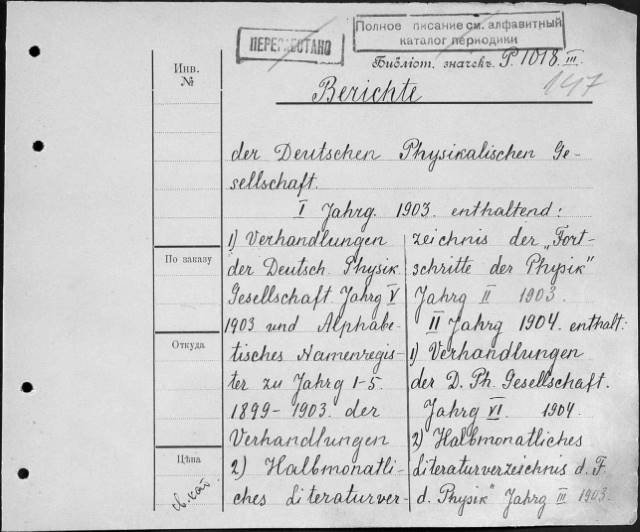 ПЕРЕМЕСТАНО
Полное писание см. алфавитный
каталог периодики
Библіот. значекъ. P. 1018. III.
147
Инв.
№
Berichte
der Deutschen Physikalischen Ge-
sellschaft.
I Jahrg. 1903. enthaltend:
1) Verhandlungen
der Deutsch. Physik.
Gesellschaft Jahrg V
1903 und Alphabe-
tisches Namenregis-
ter zu Jahrg 1-5.
1899-1903. der
Verhandlungen
2) Halbmonatli-
ches Literaturver-
zeichnis der „Fort-
schritte der Physik"
Jahrg II 1903.
II Jahrg 1904. enthalt:
1) Verhandlungen
der D. Ph. Gesellschaft.
Jahrg VI. 1904.
2) Halbmonatliches
Literaturverzeichnis d. F.
d. Physik" Jahrg III 1903.
По заказу
Откуда
Цѣна